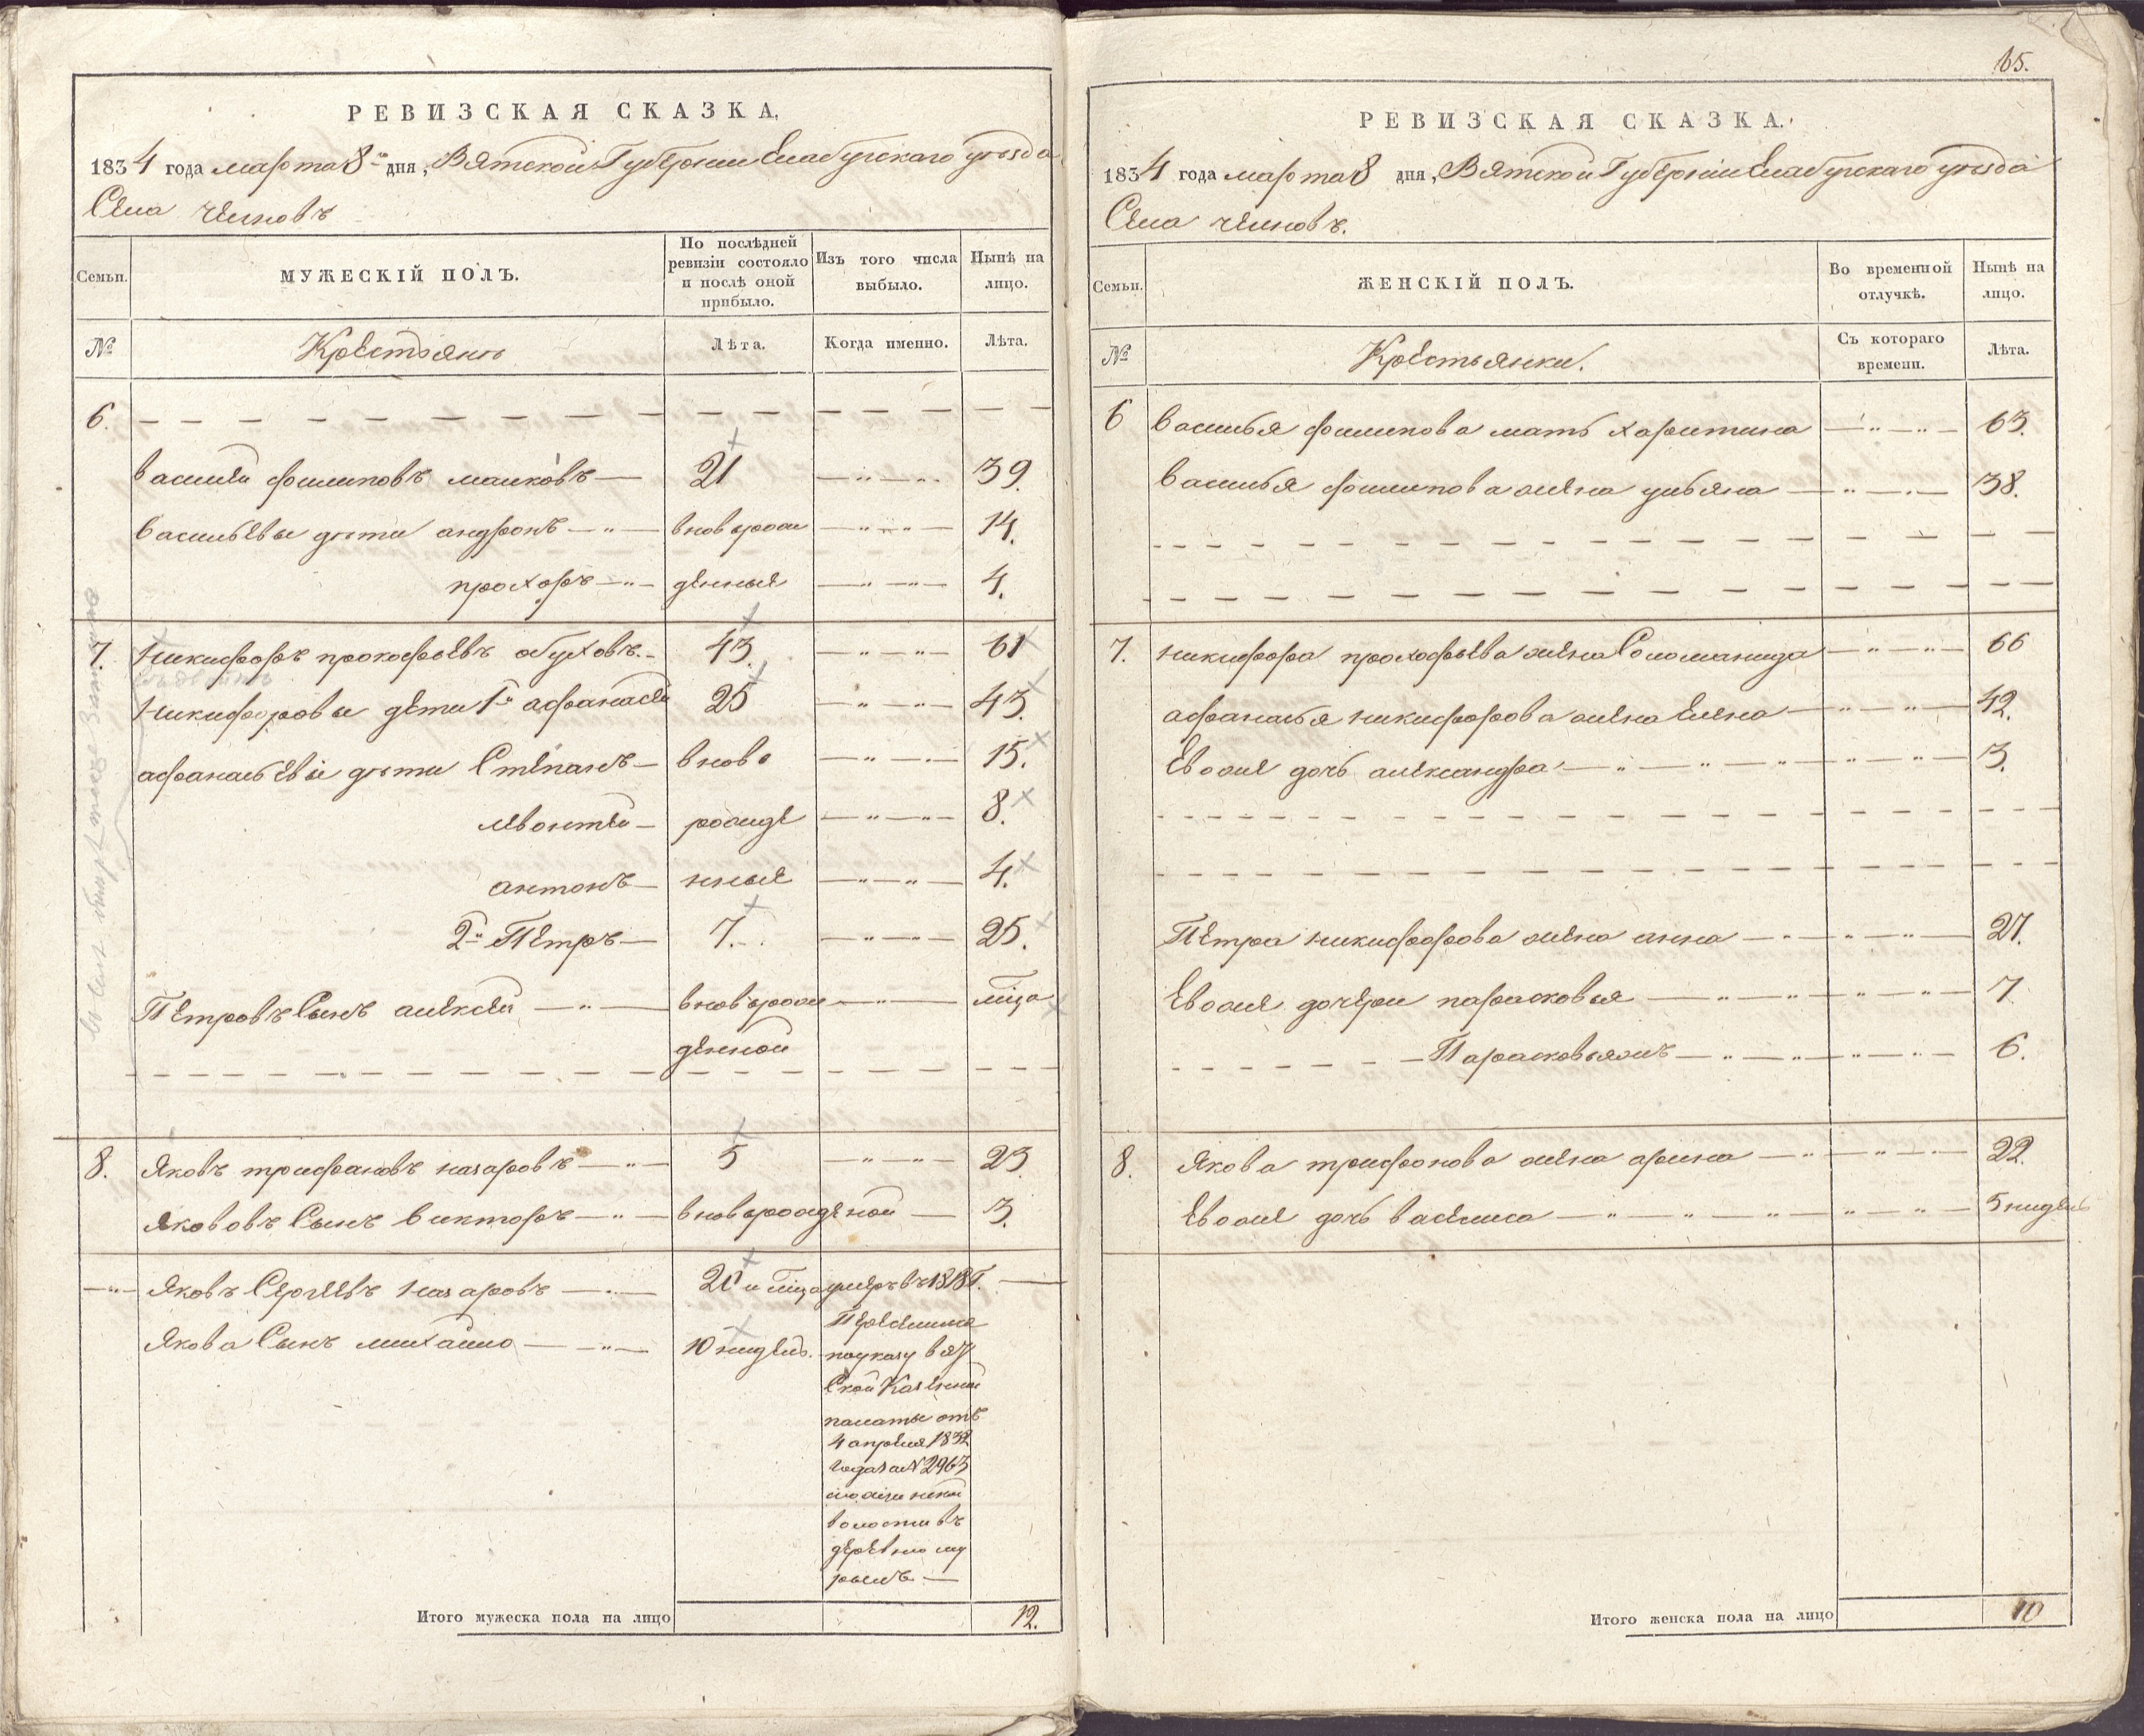 РЕВИЗСКАЯ СКАЗКА,
1834 года марта 8 дня, Вятской Губернии Елабугскаго уезда
Села челновъ
Семьи.
МУЖЕСКІЙ ПОЛЪ.
По послѣдней ревизіи состояло и послѣ оной прибыло.
Изъ того числа выбыло.
Нынѣ на лицо.
№
Крестьянъ
Лѣта.
Когда именно.
Лѣта.
6.
василей филиповъ малковъ 21 39.
васильевы дѣти андронъ вновьрож 14.
прохоръ денныя 4.
7. никифоръ прокофьевъ обуховъ. 43. 61
никифоровы дети 1й афанасей 25 43.
афанасьевы дѣти Степанъ вново 15.
левонтей рожде 8.
антонъ нныя 4.
2й Петръ 7. 25.
Петровъ Сынъ алексей вновьрож мцо
денной
8. яковъ трифановъ назаровъ 5 23
яковъ Сынъ викторъ вновьрожденой 3.
яковъ Сергеевъ назаровъ 20 и мцо умеръ въ 1818 Г.
якова Сынъ михайло 10 нидель.
поуказу вят
Ской Казенной
палаты отъ
4 апреля 1832
года за № 2963
волости въ
деревню
Итого мужеска пола на лицо 12.
65.
РЕВИЗСКАЯ СКАЗКА.
1834 года марта 8 дня, Вятской Губерніи Елабугскаго уезда
Села челновъ.
Семьи.
ЖЕНСКІЙ ПОЛЪ.
Во временной отлучкѣ.
Нынѣ на лицо.
№
Крестьянки.
Съ котораго времени.
Лѣта.
6 василья филипова мать харитина 63.
василья филипова жена ульяна 38.
7. никифора прокофьева жена Соломанида 66
афанасья никифорова жена Елена 42.
Евоже дочь александра 3.
Петра никифорова жена анна 27.
Евоже дочери парасковья 7
Парасковьяжъ 6.
8. якова трифонова жена арина 22.
Евоже дочь василиса 5 нидель
Итого женска пола на лицо 10